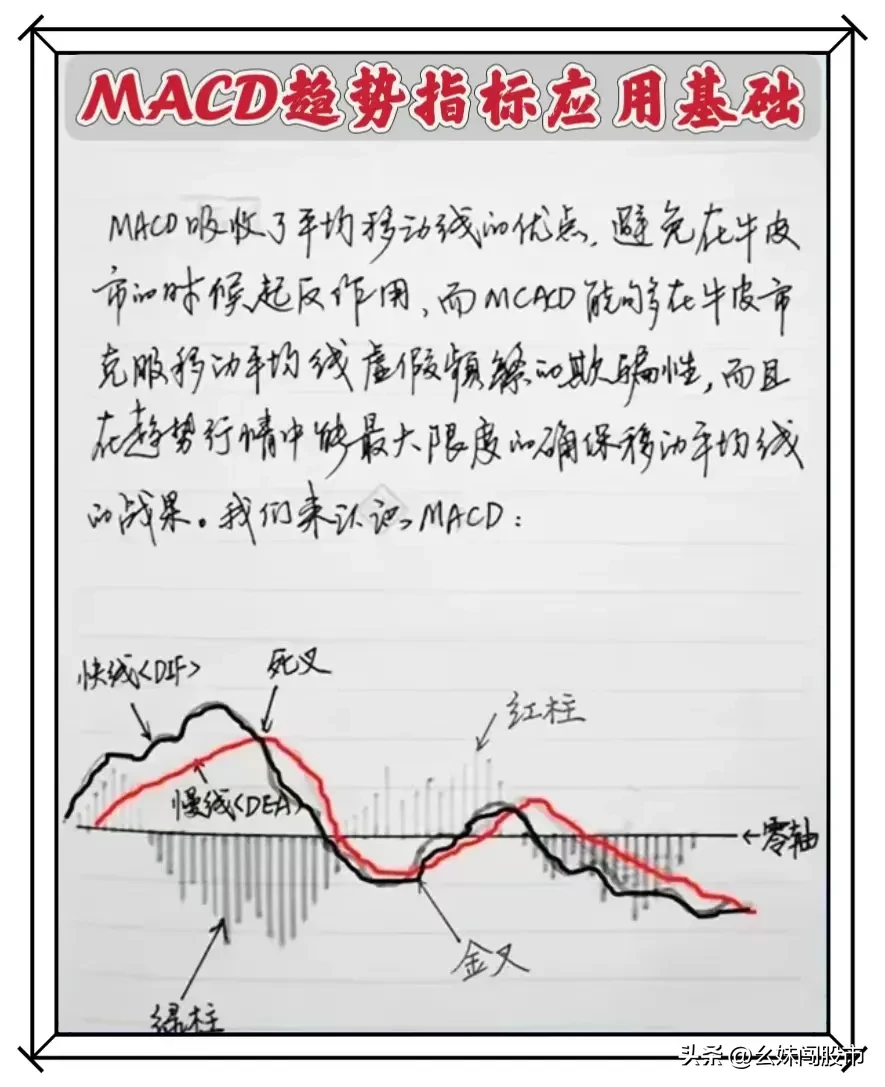 MACD趋势指标应用基础
MACD吸收了平均移动线的优点，避免在牛皮
市的时候起反作用，而MCACD能够在牛皮市
克服移动平均线虚假频繁的欺骗性，而且
在趋势行情中能最大限度的确保移动平均线
的战果。我们来认识MACD：
快线<DIF>
死叉
红柱
慢线<DEA>
←零轴
金叉
绿柱
头条 @幺妹闯股市